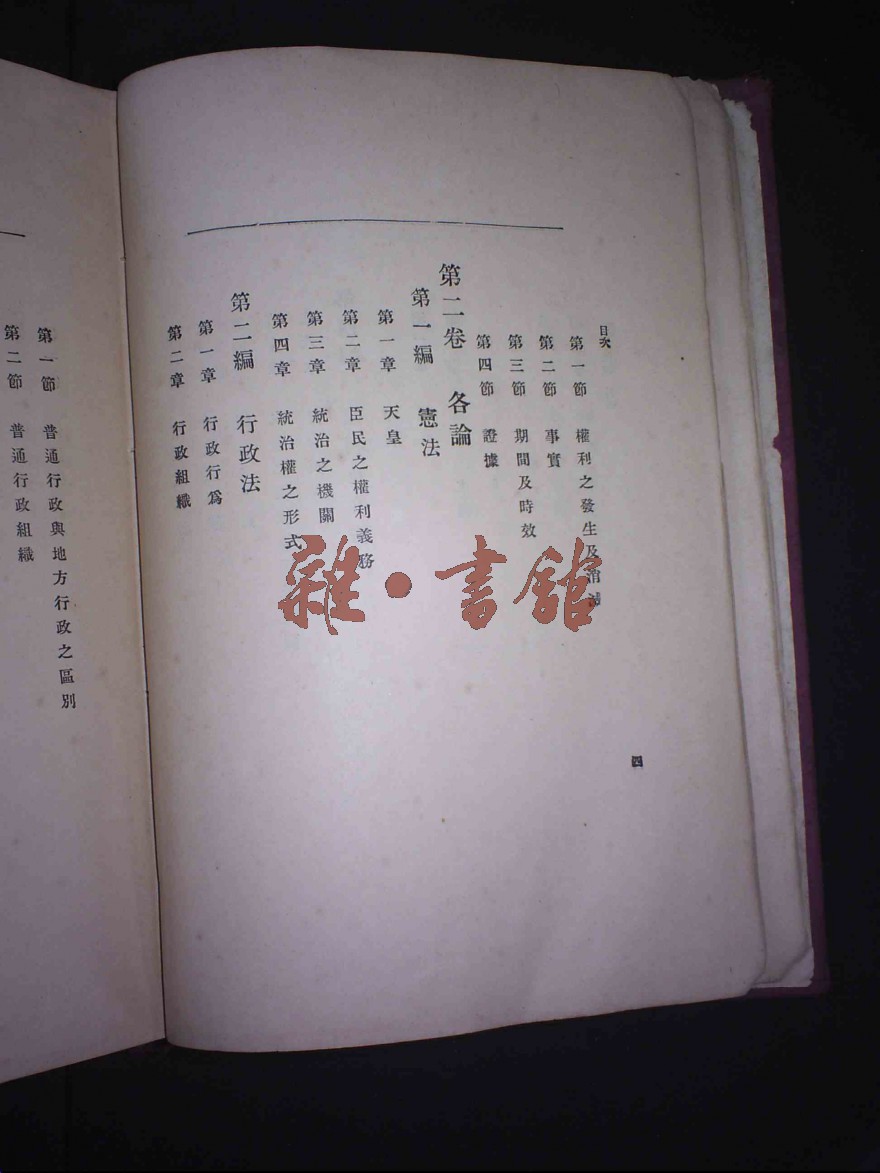 目次
第一節 權利之發生及消滅
第二節 事實
第三節 期間及時效
第四節 證據
第二卷 各論
第一編 憲法
第一章 天皇
第二章 臣民之權利義務
第三章 統治之機關
第四章 統治權之形式
第二編 行政法
第一章 行政行爲
第二章 行政組織
四
第一節 普通行政與地方行政之區別
第二節 普通行政組織
雜·書館